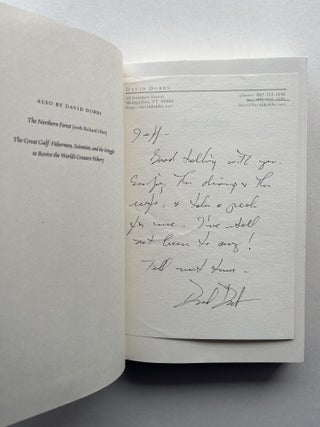 ALSO BY DAVID DOBBS
The Northern Forest (with Richard Ober)
The Great Gulf: Fishermen, Scientists, and the Struggle
to Revive the World's Greatest Fishery
DAVID DOBBS
Montpelier, VT
Jeff—
Good talking with you.
Enjoy the diving & the
reefs, & take a peek
for me. I've still
not been to any!
Till next time —
David Dobbs